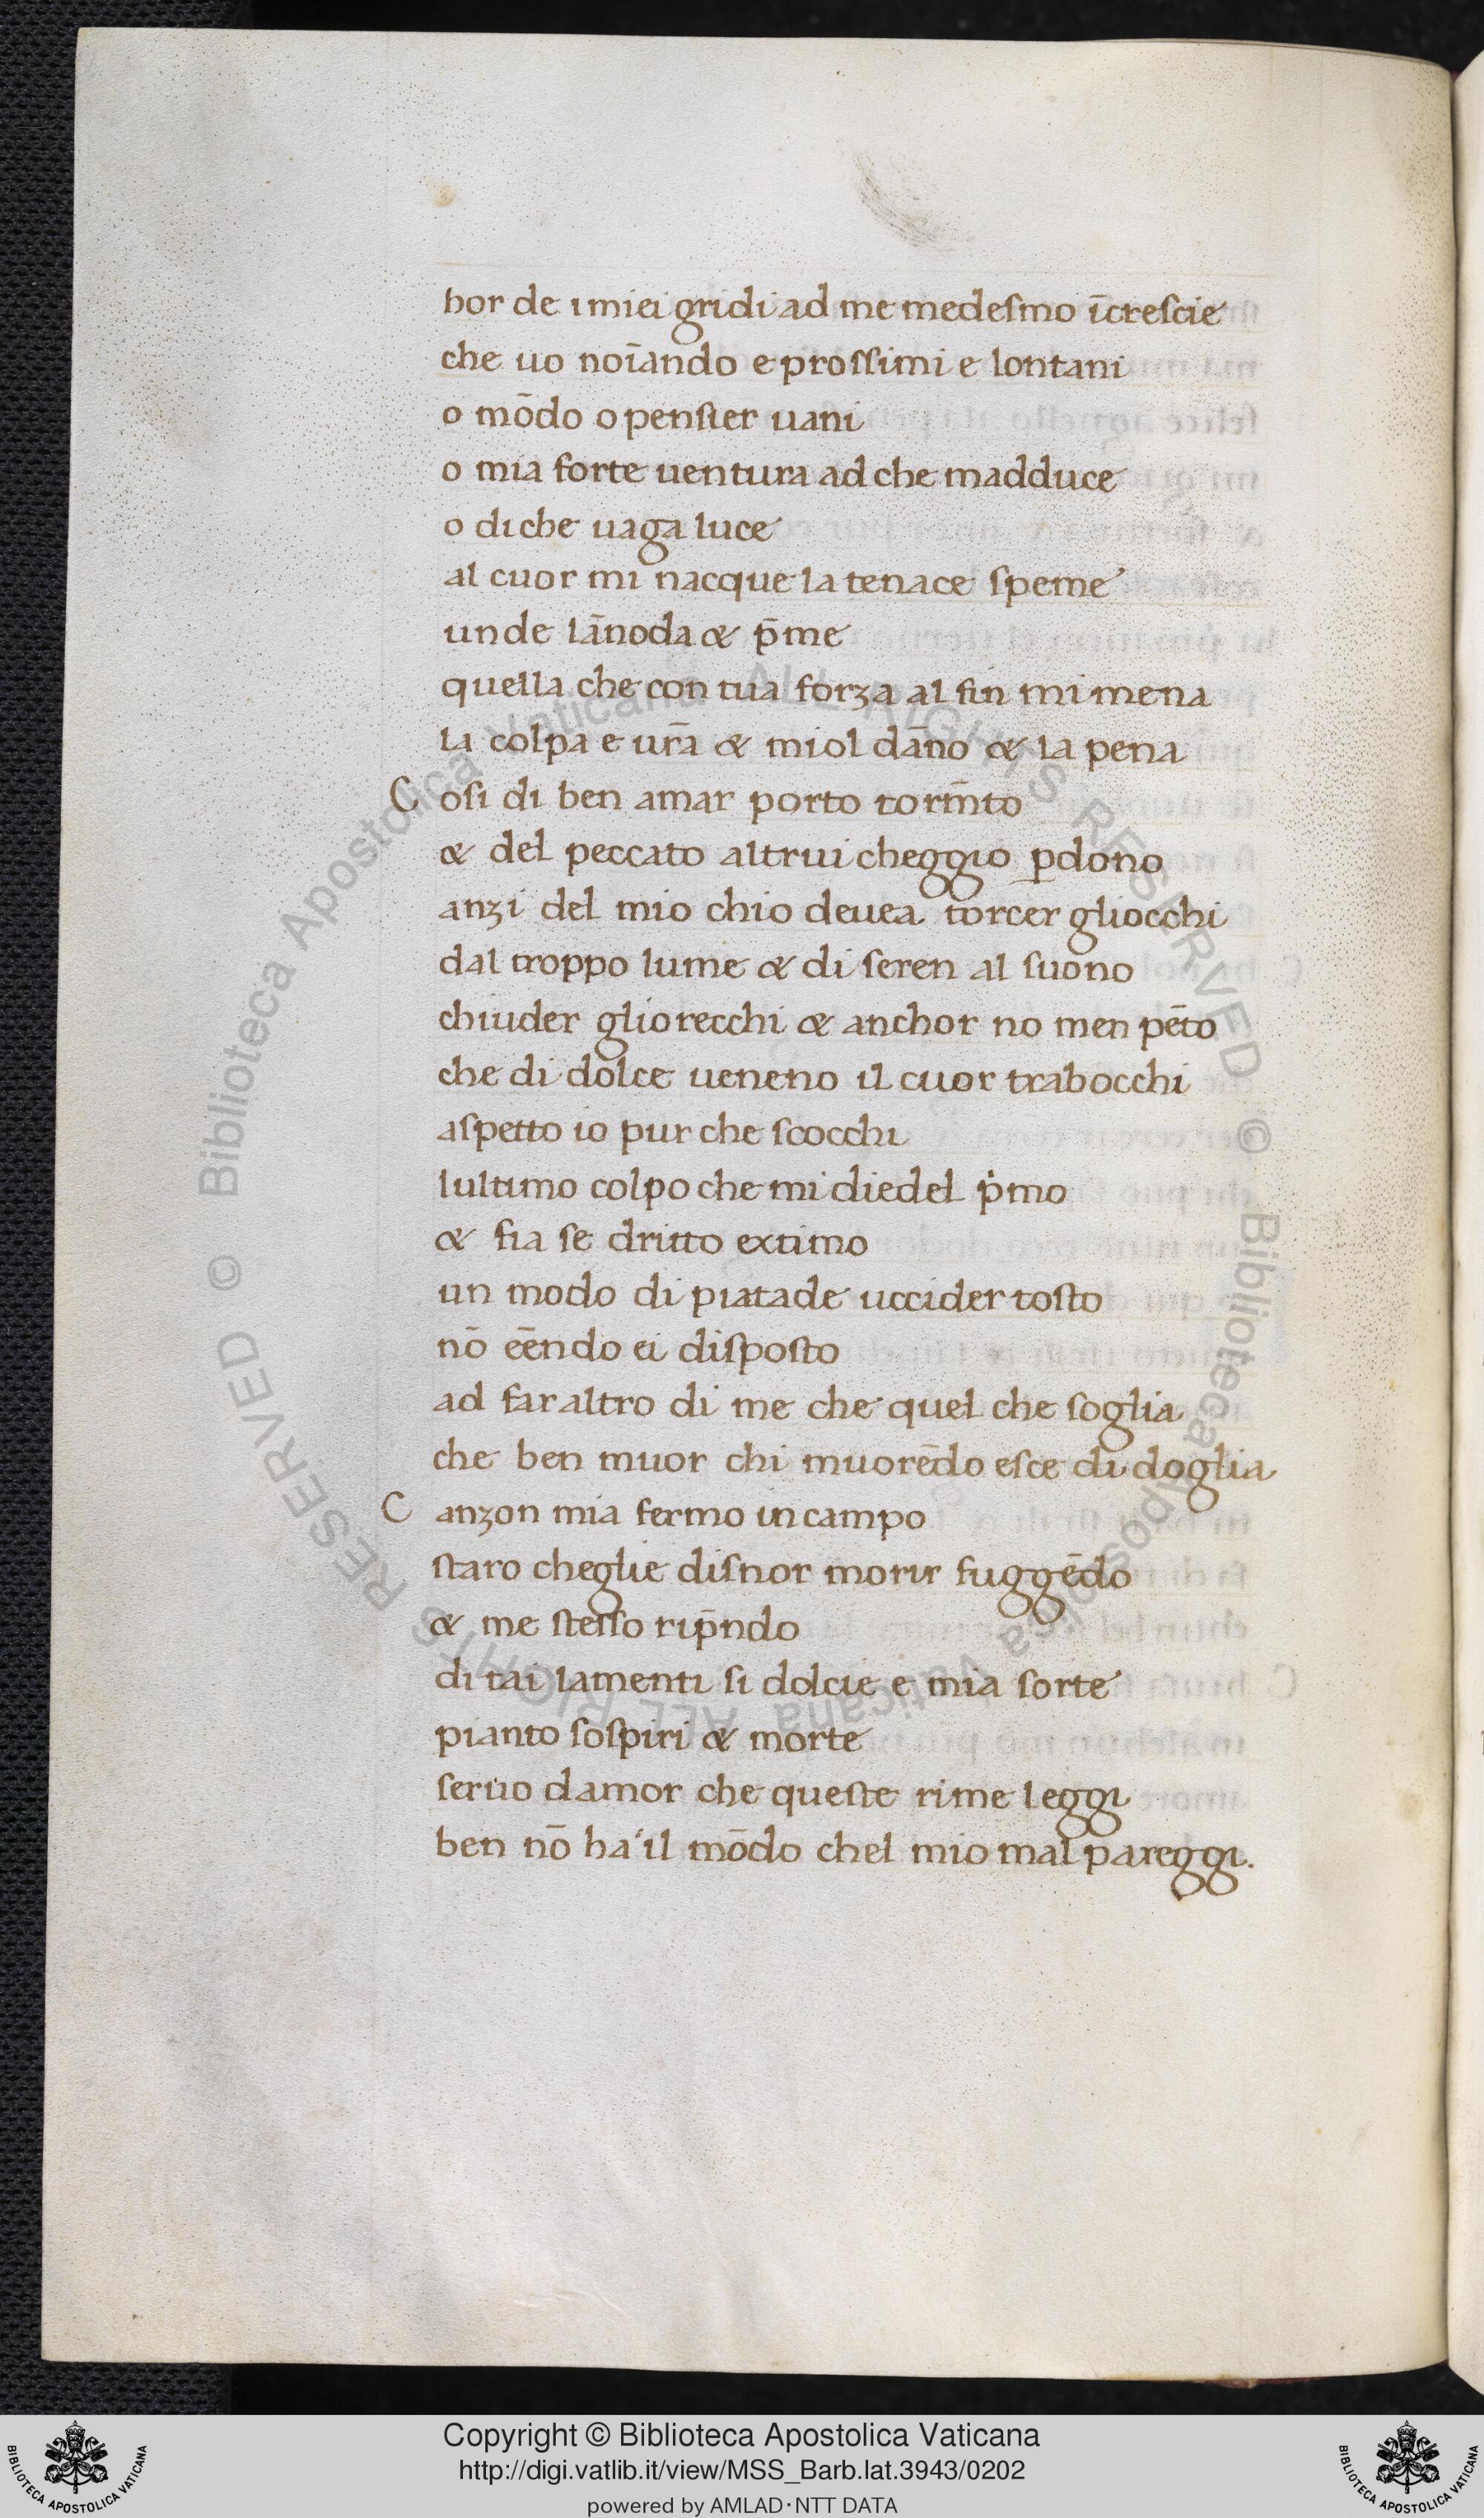 hor de i miei gridi ad me medesmo īcrescie
che uo noīando e prossimi e lontani
o mōdo o pensier uani
o mia forte uentura ad che madduce
o di che uaga luce
al cuor mi nacque la tenace speme
unde lānoda & p̄me
quella che con tua forza al fin mi mena
la colpa e ur̄a & miol dāno & la pena
Cosi di ben amar porto torm̄to
& del peccato altrui cheggio ꝑdono
anzi del mio chio deuea torcer gliocchi
dal troppo lume & di seren al suono
chiuder gliorecchi & anchor no men pēto
che di dolce ueneno il cuor trabocchi
aspetto io pur che scocchi
lultimo colpo che mi diedel p̍mo
& fia se dritto extimo
un modo di piatade uccider tosto
nō eēndo ei disposto
ad far altro di me che quel che soglia
che ben muor chi muorēdo esce di doglia
Canzon mia fermo in campo
staro cheglie disnor morir fuggēdo
& me stesso rip̄ndo
di tai lamenti si dolcie e mia sorte
pianto sospiri & morte
seruo damor che queste rime leggi
ben nō ha il mōdo chel mio mal pareggi.
Copyright © Biblioteca Apostolica Vaticana
http://digi.vatlib.it/view/MSS_Barb.lat.3943/0202
powered by AMLAD·NTT DATA
BIBLIOTECA APOSTOLICA VATICANA
BIBLIOTECA APOSTOLICA VATICANA
© Biblioteca Apostolica Vaticana ALL RIGHTS RESERVED
© Biblioteca Apostolica Vaticana ALL RIGHTS RESERVED